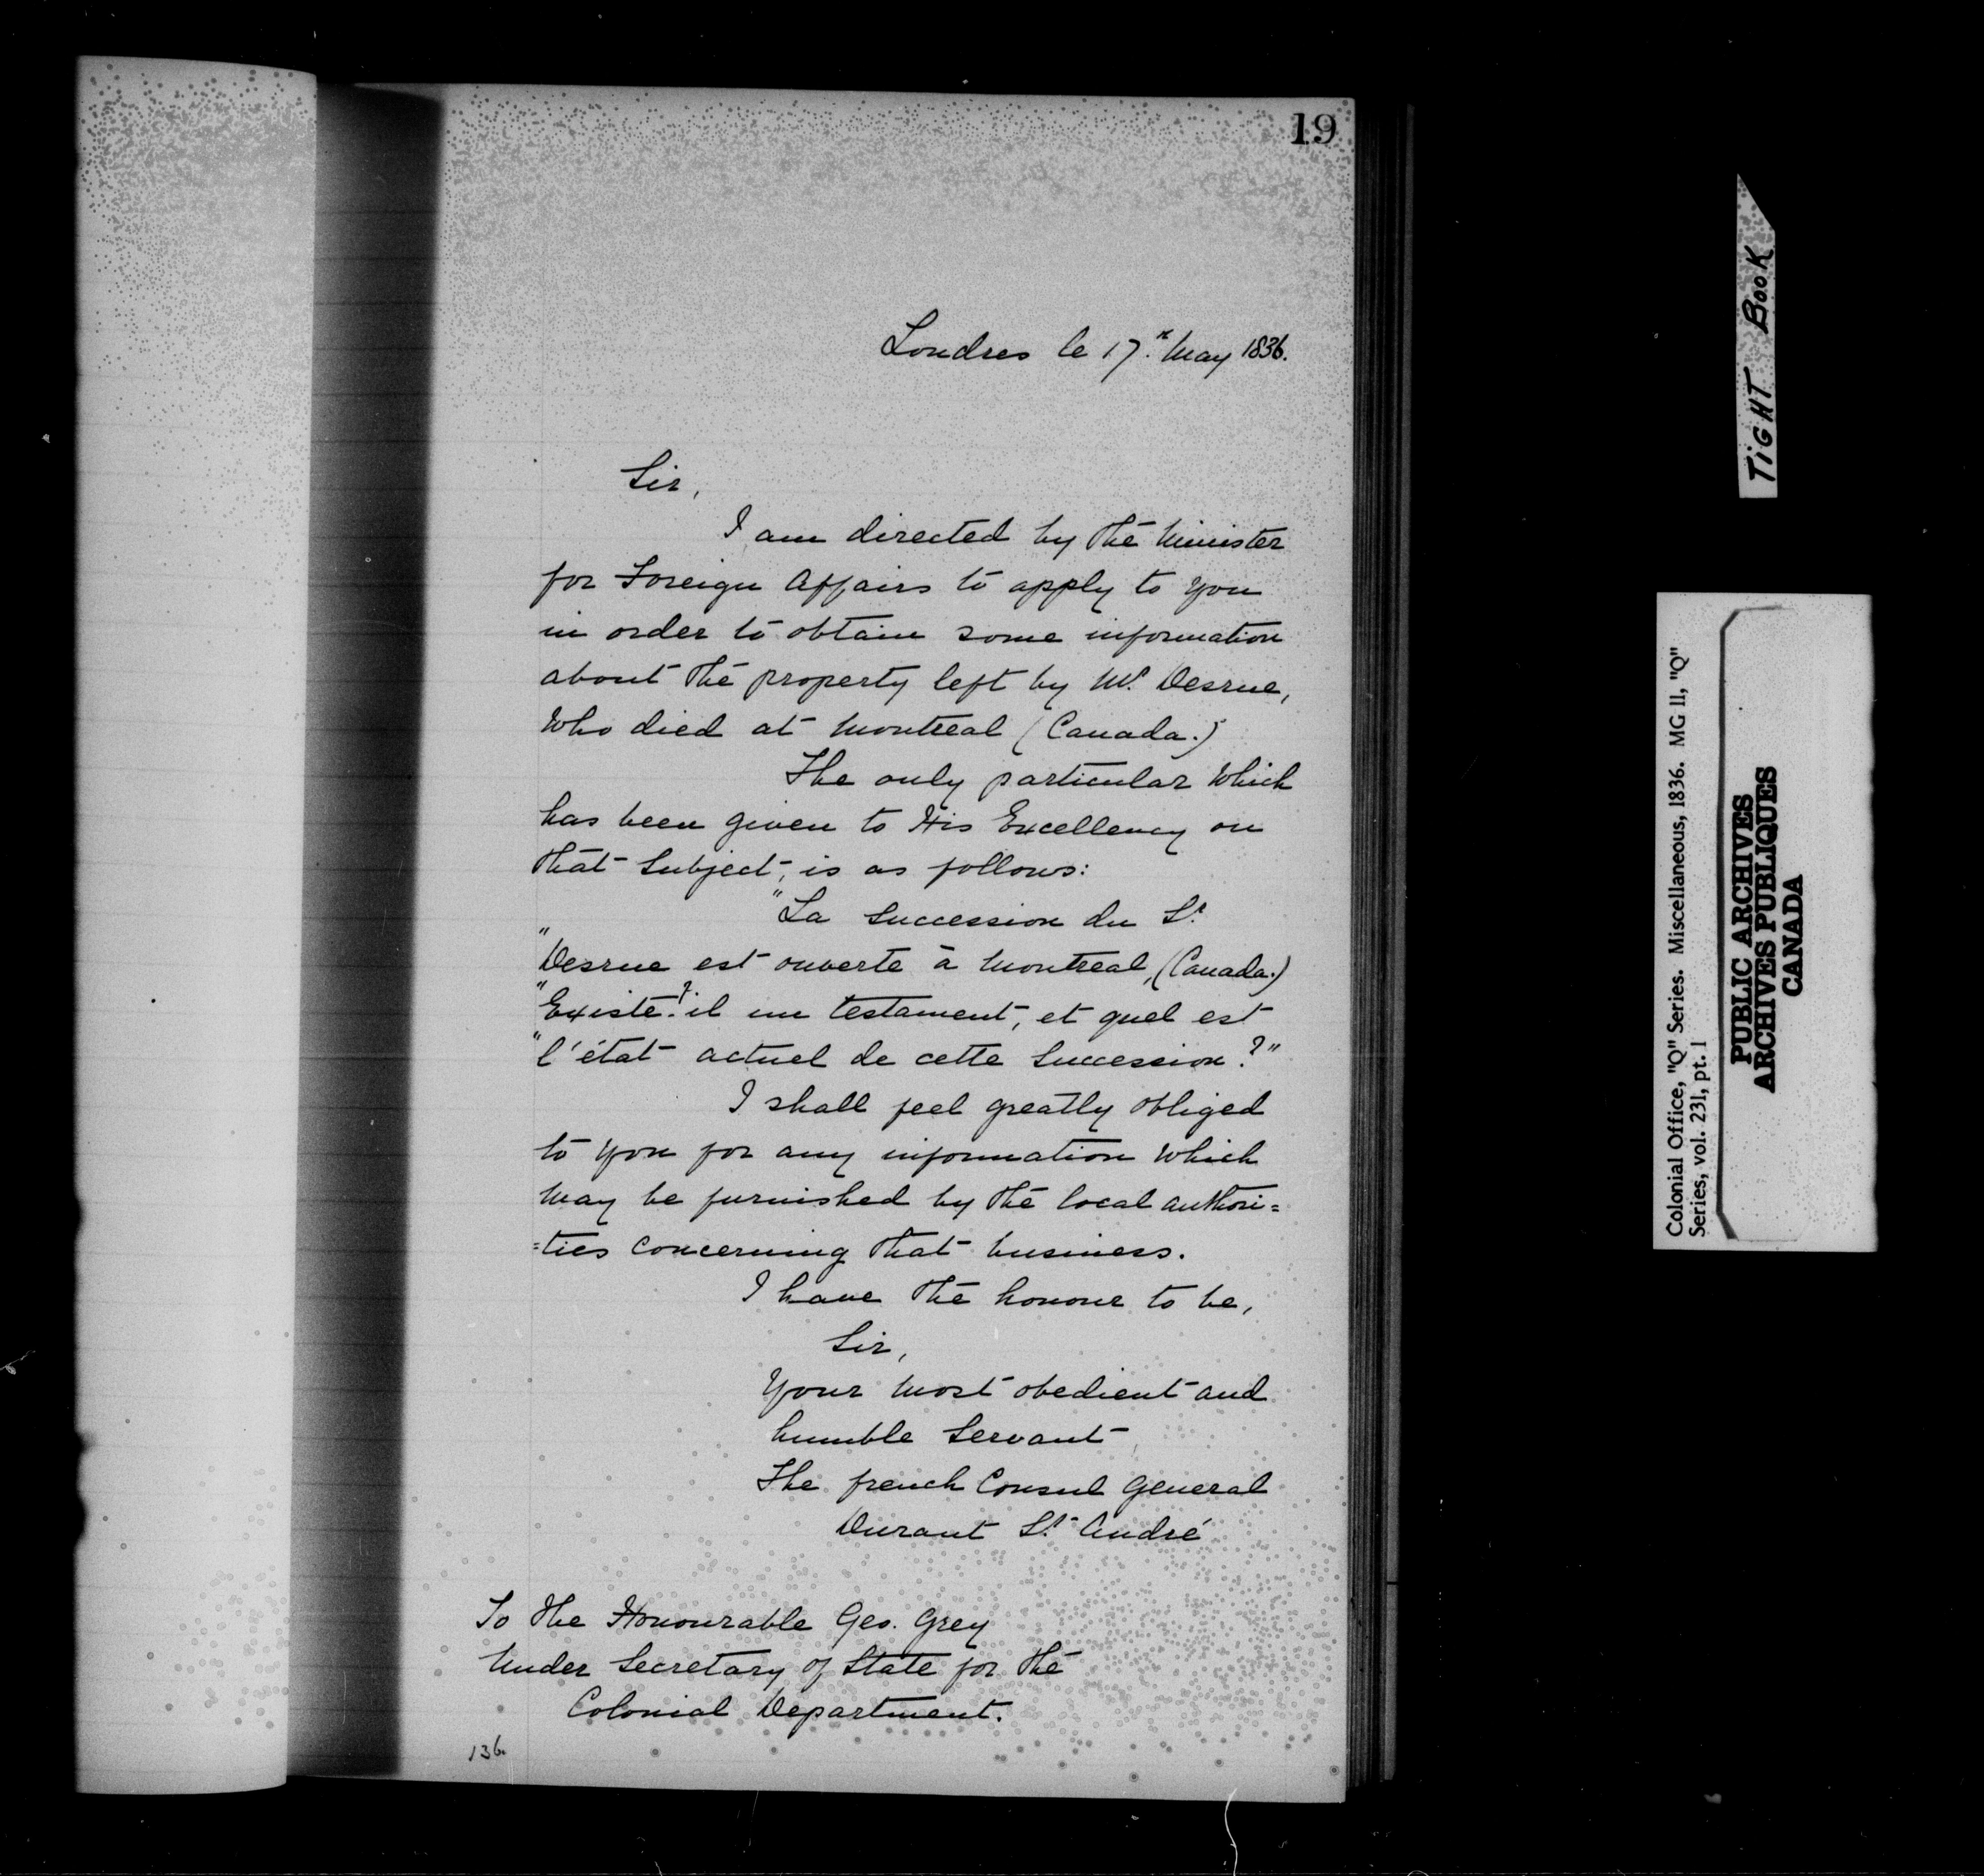 19
Londres le 17.th May 1836.
Sir,
I am directed by the Minister
for Foreign Affairs to apply to you
in order to obtain some information
about the property left by Mr. Desrue,
who died at Montreal (Canada.)
The only particular which
has been given to His Excellency on
that subject, is as follows:
"La succession du Sr.
"Desrue est ouverte à Montreal, (Canada.)
"Existe-?il un testament, et quel est
"l'état actuel de cette succession?"
I shall feel greatly obliged
to you for any information which
may be furnished by the local authori=
=ties concerning that business.
I have the honour to be,
Sir,
Your most obedient and
humble Servant
The french Consul General
Durant St. André
To the Honourable Geo. Grey
Under Secretary of State for the
Colonial Department.
136.
TIGHT BOOK
Colonial Office, "Q" Series. Miscellaneous, 1836. MG 11, "Q"
Series, vol. 231, pt. 1
PUBLIC ARCHIVES
ARCHIVES PUBLIQUES
CANADA